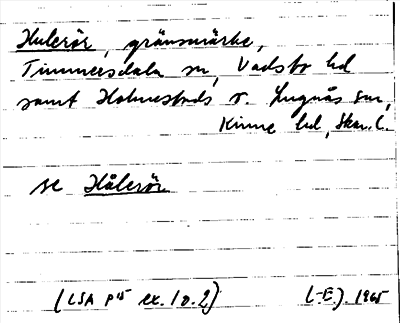 Hulerör, gränsmärke,
Timmersdala sn, Vadsbo hd
samt Holmestads o. Lugnås snr,
Kinne hd, Skar. l.
se Hålerör
(LSA P 15 ex. 1 o. 2) (-E.). 1965